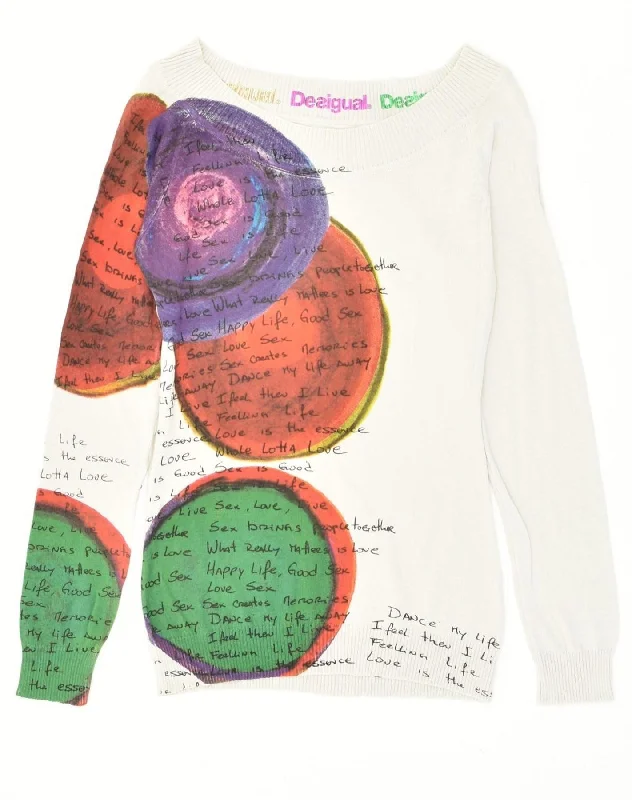 Desigual. Desig
I feel then
Feelling Life
Love is the essence
Whole Lotta Love
Sex is Good
Life Sex is
Sex, Love, Live
Sex brings people together
Love What Really Matters is Love
Good Sex Happy Life, Good Sex
Sex Love Sex
Sex creates Memories
Away Dance my Life away
I feel then I Live
Feelling Life
essence Love is the essence
Love Whole Lotta Love
is Good Sex is Good
is Life
Live Sex, Love, Live
together Sex brings people together
is Love What Really Matters is Love
Good Sex Happy Life, Good Sex
Love Sex
Good Sex Sex creates Memories
away Dance my Life away
I feel then I Live
Feelling Life
essence Love is the essence
Life
s the essence
Lotta Love
s Good
Love, Live
brings people t
eally Matters is L
Life, Good Sex
Sex
tes Memories
my Life awa
I Live
Life
the essen
Dance my Life
I feel then I Li
Feelling Life
Love is the ess